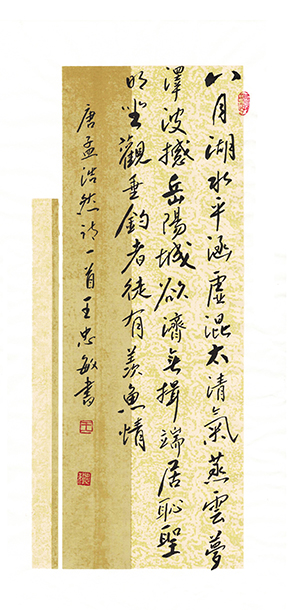 八月湖水平涵虛混太清氣蒸雲夢
澤波撼岳陽城欲濟無楫端居恥聖
明坐觀垂釣者徒有羨魚情
唐孟浩然詩一首王忠敏書